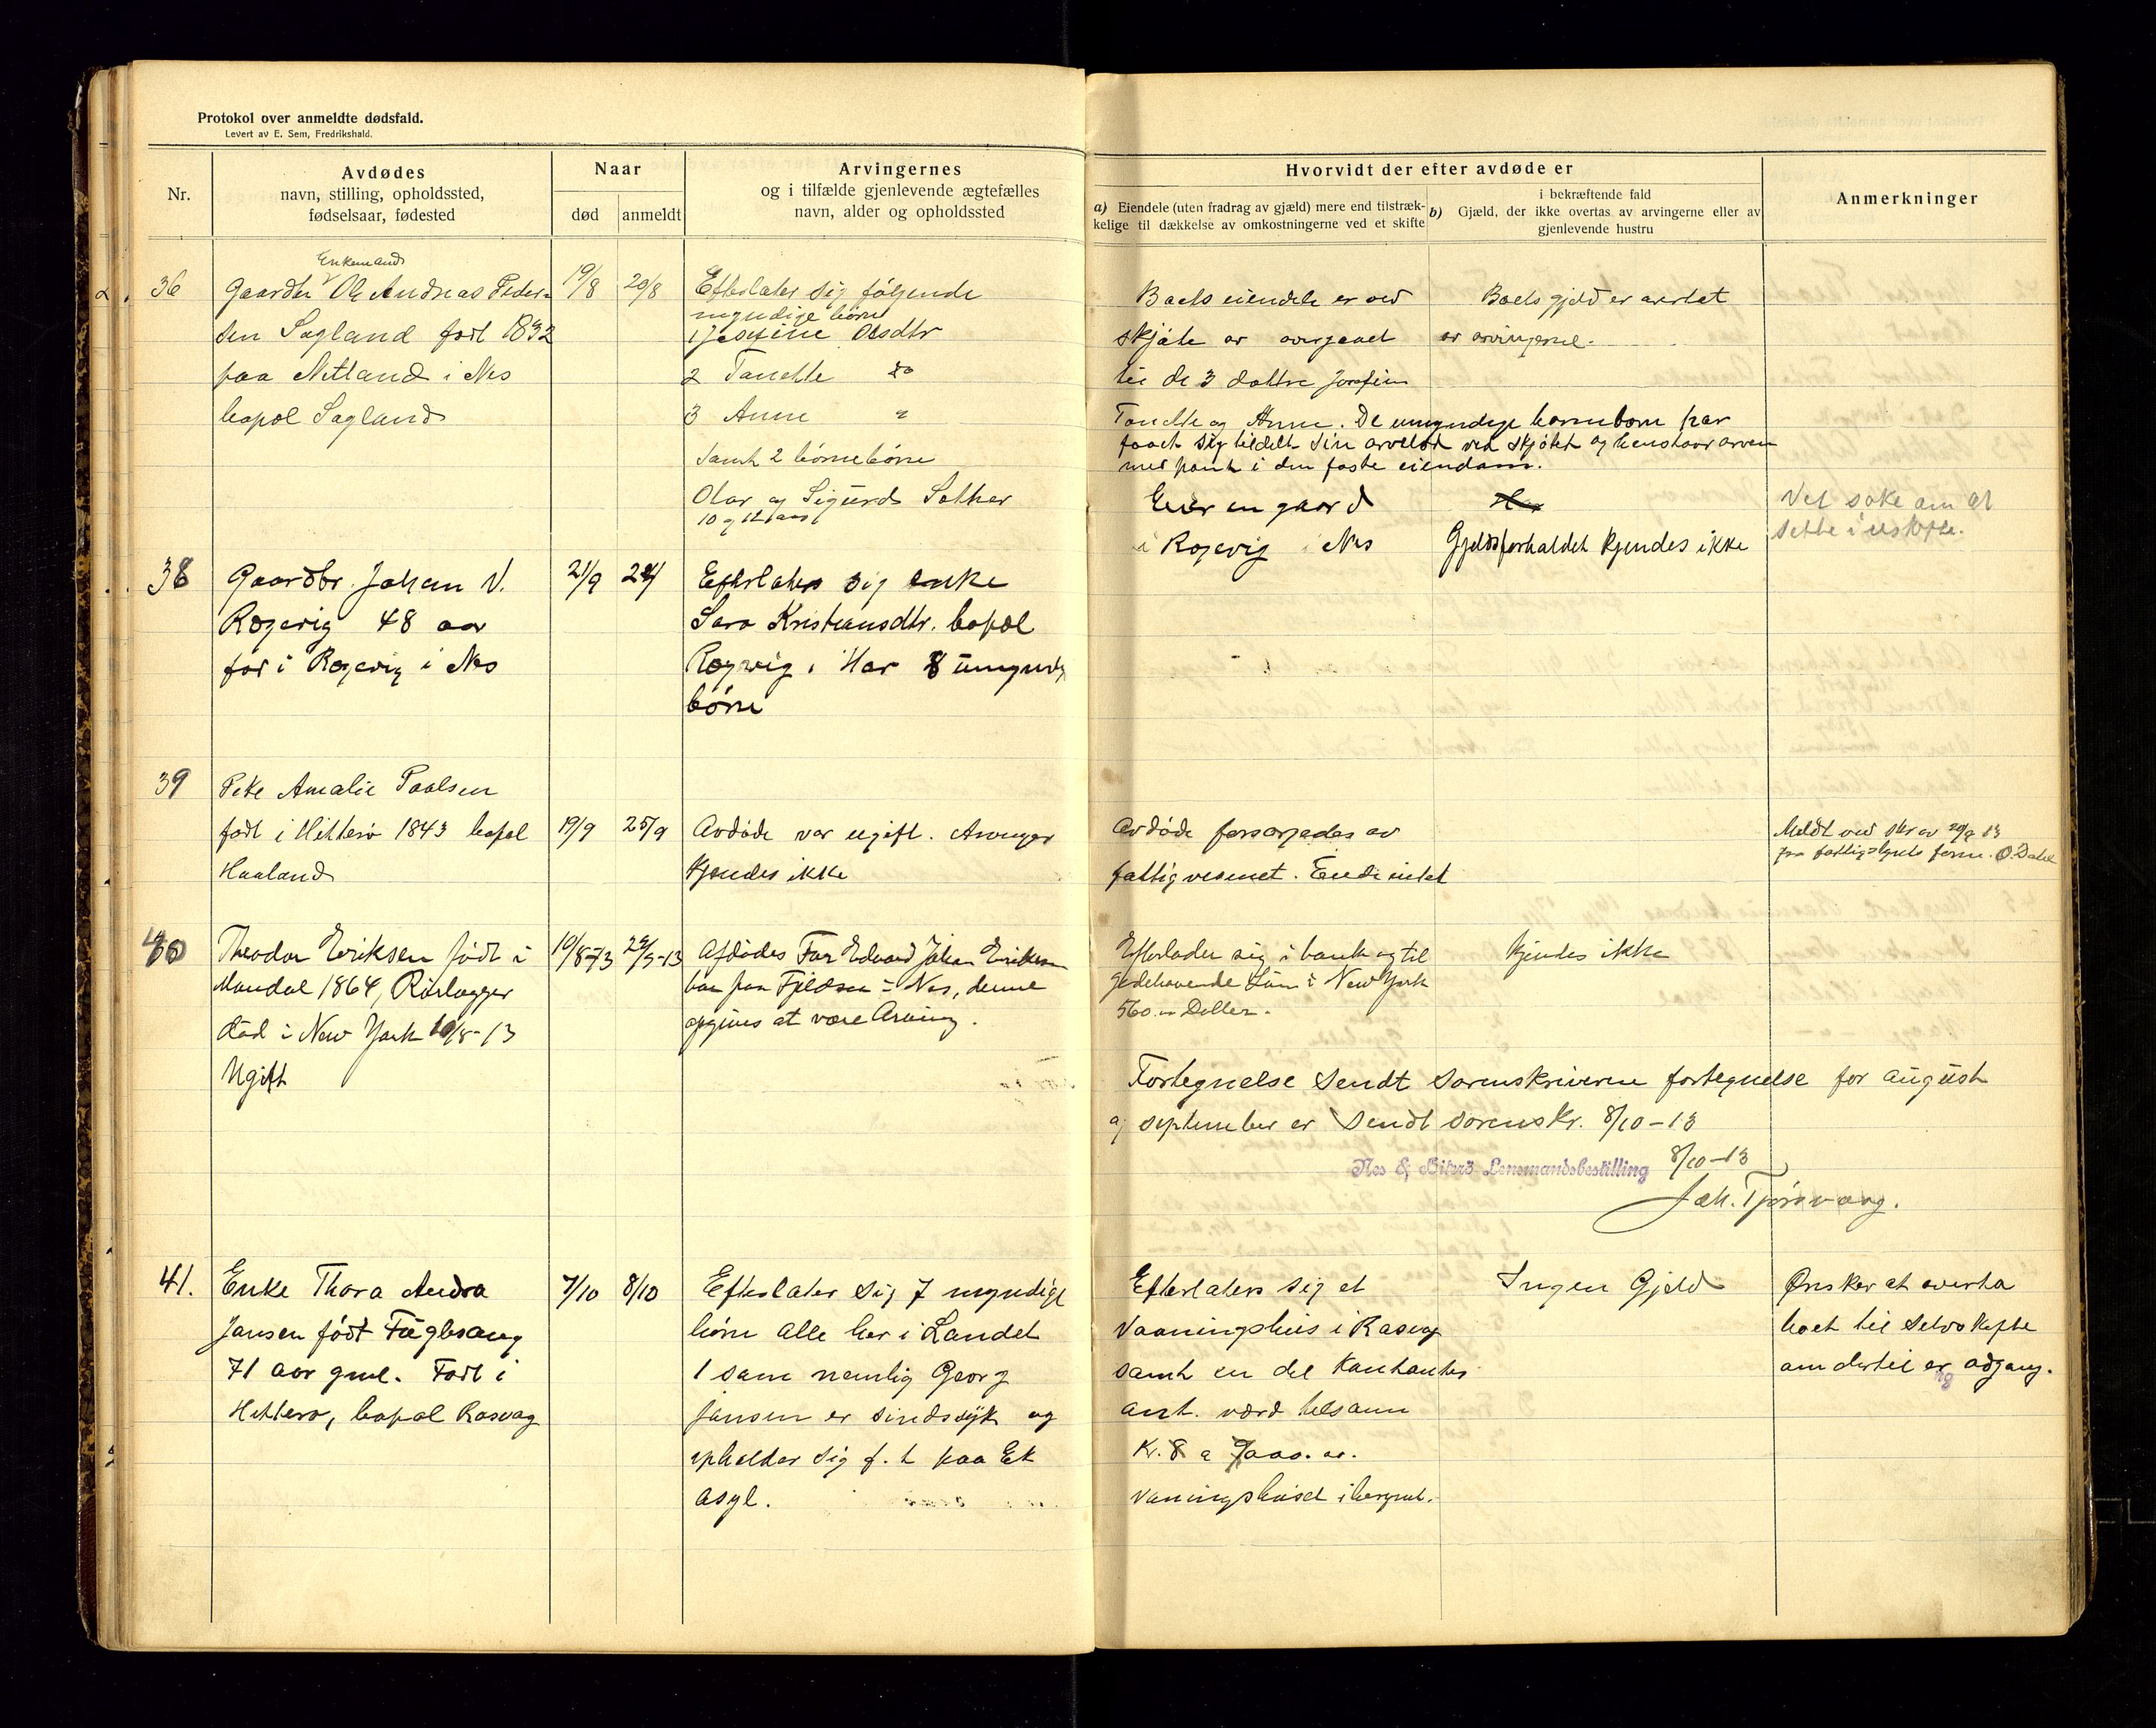 Protokol over anmeldte dødsfald.
Levert av E. Sem, Fredrikshald.
Nr.
Avdødes
navn, stilling, opholdssted,
fødselsaar, fødested
Naar
død
anmeldt
Arvingernes
og i tilfælde gjenlevende ægtefælles
navn, alder og opholdssted
Hvorvidt der efter avdøde er
a) Eiendele (uten fradrag av gjæld) mere end tilstræk-
kelige til dækkelse av omkostningerne ved et skifte
i bekræftende fald
b) Gjæld, der ikke overtas av arvingerne eller av
gjenlevende hustru
Anmerkninger
36
Enkemand
Gaardbr Ole Andreas Peder-
sen Sagland født 1832
paa Netland i Nes
bopæl Sagland
19/8
20/8
Efterlater sig følgende
myndige børn
1 Josefine Olsdtr
2 Tanette do
3 Anne "
Samt 2 børnebørn
Olav og Sigurd
10 og 12 aar
Boets eiendele er ved
skjøte av overgaaet
til de 3 døttre Josefine
Tanette og Anne. De umyndige barnebørn har
faaet sig tildelt sin arvelod ved skjøtet og henstaar arven
med pant i den faste eiendom.
Boets gjeld er overtat
av arvingerne.
38
Gaardbr. Johan V.
Røgevig 48 aar
før i Røgevig i Nes
21/9
24/
Efterlater sig enke
Sara Kristiansdtr. bopæl
Røgevig. Har 8 umyndige
børn
Eier en gaard
i Røgevig i Nes
Gjeldsforholdet kjendes ikke
Vil søke om at
sitte i uskifte.
39
Pike Amalie Paalsen
født i Hitterø 1843 bopæl
Haaland
19/9
25/9
Avdøde var ugift. Arvinger
kjendes ikke
Avdøde forsørgedes av
fattigvesenet. Eiede intet
Meldt ved skr av 20/9 13
fra fattigstyrets form. O. Dahl
40
Theodor Eriksen født i
Mandal 1864, Rørlægger
død i New York 10/8-13
Ugift
10/8-13
22/9-13
Afdødes Far Edvard Johan Eriksen
bor paa Fjeldsaa i Nes, denne
opgives at være Arving.
Efterlader sig i bank og til
godehavende Løn i New York
560.00 Doller.
Kjendes ikke
Fortegnelse sendt sorenskriveren fortegnelse for august
og september er sendt sorenskr. 8/10-13
Nes & Hiterö Lensmandsbestilling 8/10-13
Joh. Tjørsvaag.
41.
Enke Thora Andrea
Jansen født Fuglesang
71 aar gml. Født i
Hitterø, bopæl Rasvag
7/10
8/10
Efterlater sig 7 myndige
børn alle her i Landet
1 søn nemlig Georg
Jansen er sindssyk og
opholder sig f. t paa Ek
asyl.
Efterlater sig et
Vaaningshus i Rasvag
samt en del Kontanter
ant. værd tilsam
Kr. 8 a 9000. 00.
Vaningshuset iberegnet.
Ingen Gjeld
Ønsker at overta
boet til selvskifte
om dertil er adgang.